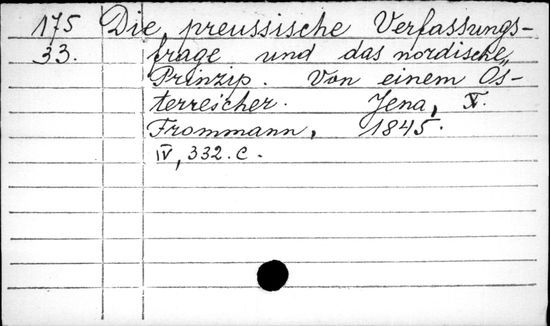 175 Die preussische Verfassungs-
33. frage und das nordische
Prinzip. Von einem Ös-
terreicher. Jena,
Frommann, 1845.
IV, 332. c.